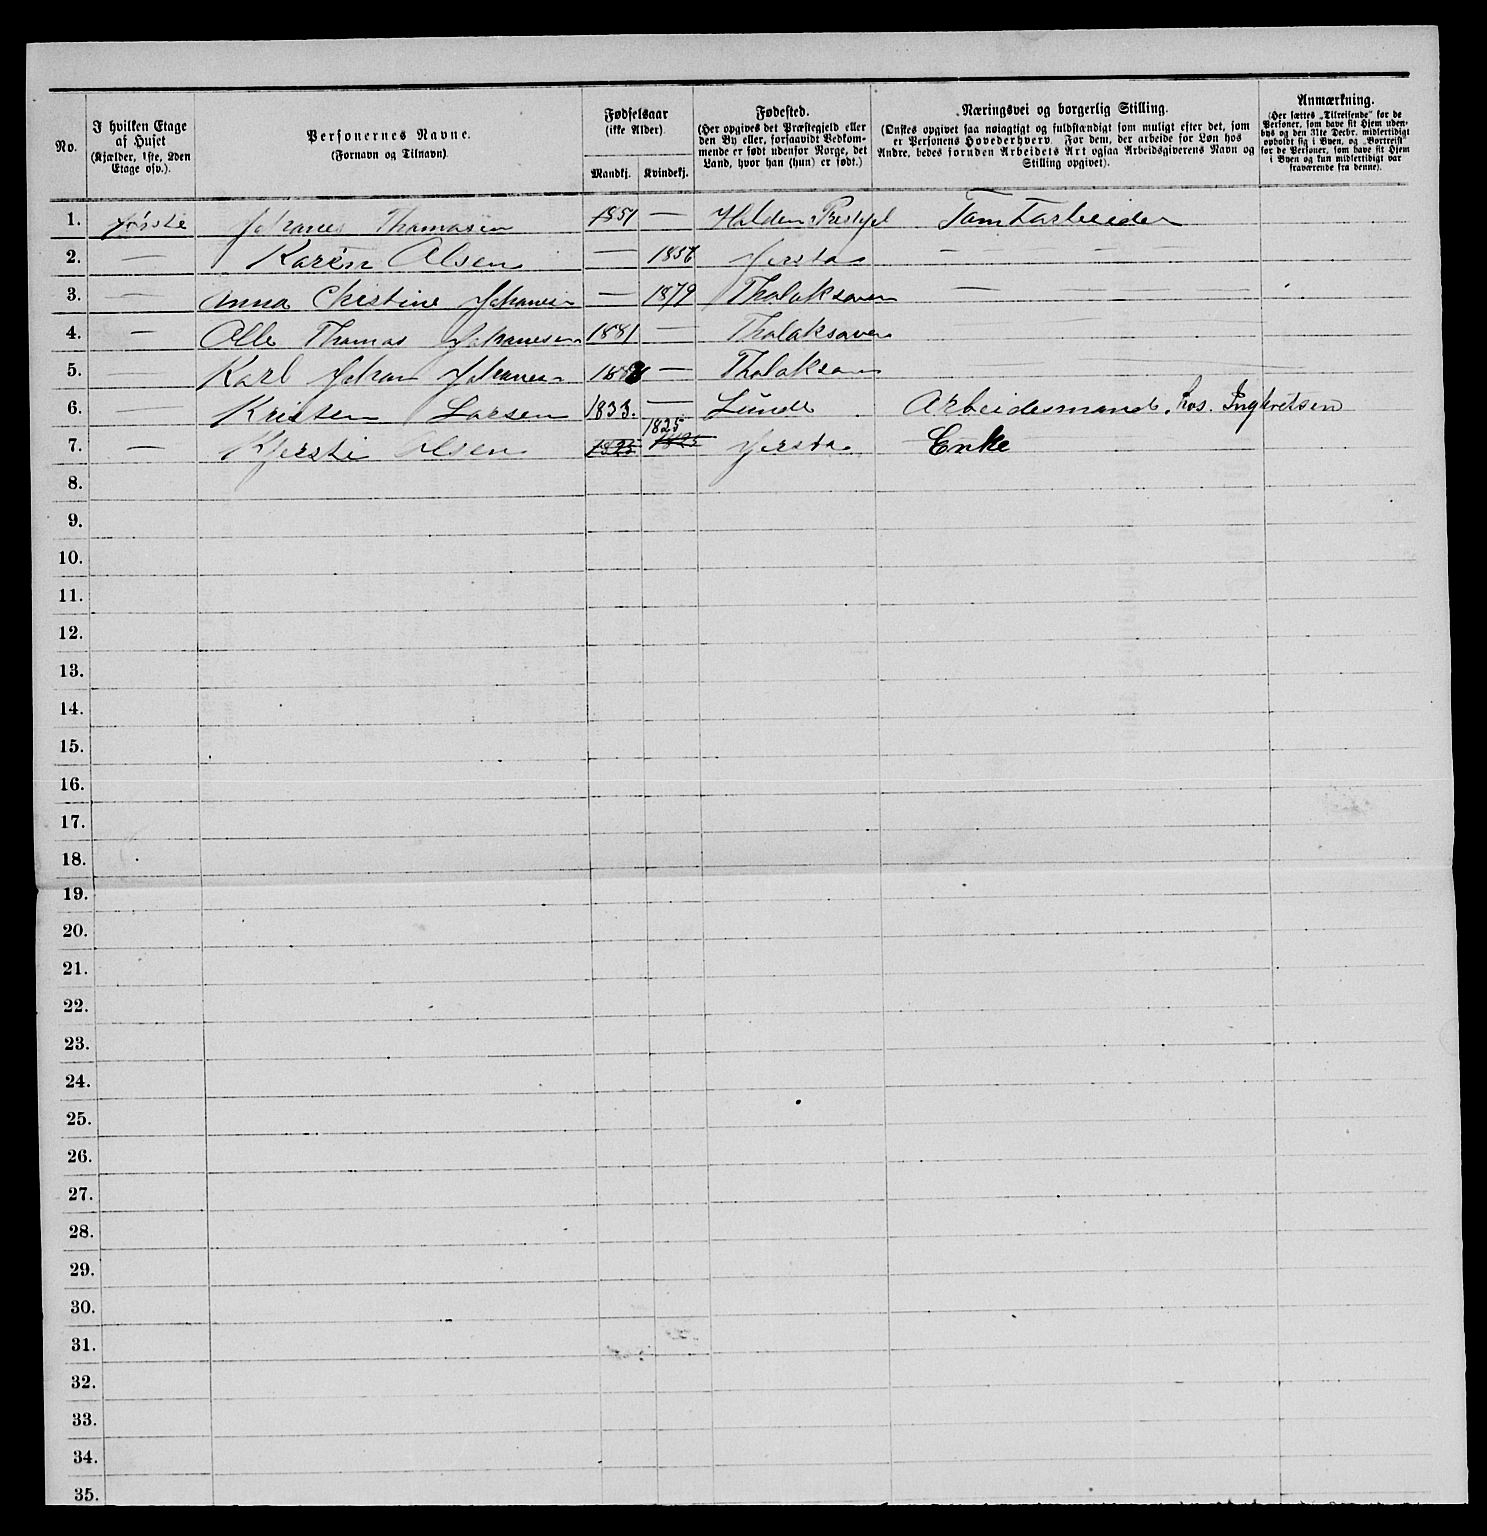 No.
I hvilken Etage af Huset (Kjælder, 1ste, 2den Etage osv.).
Personernes Navne. (Fornavn og Tilnavn)
Fødselsaar (ikke Alder).
Mandkj. Kvindekj.
Fødested. (Her opgives det Præstegjeld eller den By eller, forsaavidt Vedkommende er født udenfor Norge, det Land, hvor han (hun) er født.)
Næringsvei og borgerlig Stilling. (Ønskes opgivet saa nøiagtigt og fuldstændigt som muligt efter det, som er Personens Hovederhverv. For dem, der arbeide for Løn hos Andre, bedes foruden Arbeidets Art ogsaa Arbeidsgiverens Navn og Stilling opgivet).
Anmærkning. (Her sættes „Tilreisende“ for de Personer, som have sit Hjem udenbys og den 31te Decbr. midlertidigt opholdt sig i Byen, og „Bortreist“ for de Personer, som have sit Hjem i Byen og kun midlertidigt var fraværende fra denne).
1. første Johanes Thomasen 1851 — Holden Prestgel Tomtarbeider
2. — Karen Olsen — 1856 Gjersta — — —
3. — Anna Christine Johanes — 1879 Tholaksaven — — —
4. — Olle Thomas Johanesen 1881 — Tholaksaven
5. — Karl Johan Johanes — Tholaksav
6. — Kristen Larsen 1833. — Lunde Arbeidesmand. hos. Inghvitsen
7. — Kjersti Olsen 1825 1825 1825 Gjersta Enke
8.
9.
10.
11.
12.
13.
14.
15.
16.
17.
18.
19.
20.
21.
22.
23.
24.
25.
26.
27.
28.
29.
30.
31.
32.
33.
34.
35.